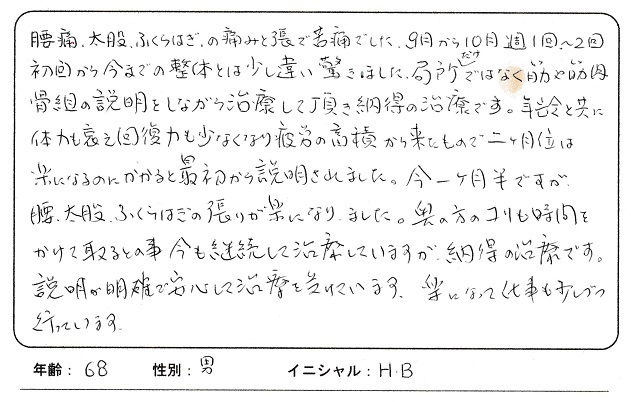 腰痛、太股、ふくらはぎ、の痛みと張で苦痛でした。9月から10月週1回〜2回
初回から今までの整体とは少し違い驚きました。局所だけではなく筋や筋肉
骨組の説明をしながら治療して頂き納得の治療です。年齢と共に
体力も衰え回復力も少なくなり疲労の蓄積から来たもので二ヶ月位は
楽になるのにかかると最初から説明されました。今一ヶ月半ですが、
腰、太股、ふくらはぎの張りが楽になりました。奥の方のコリも時間を
かけて取るとの事 今も継続して治療していますが、納得の治療です。
説明が明確で安心して治療を受けています。楽になって仕事も少しづつ
行っています。
年齢： 68 性別： 男 イニシャル： H・B